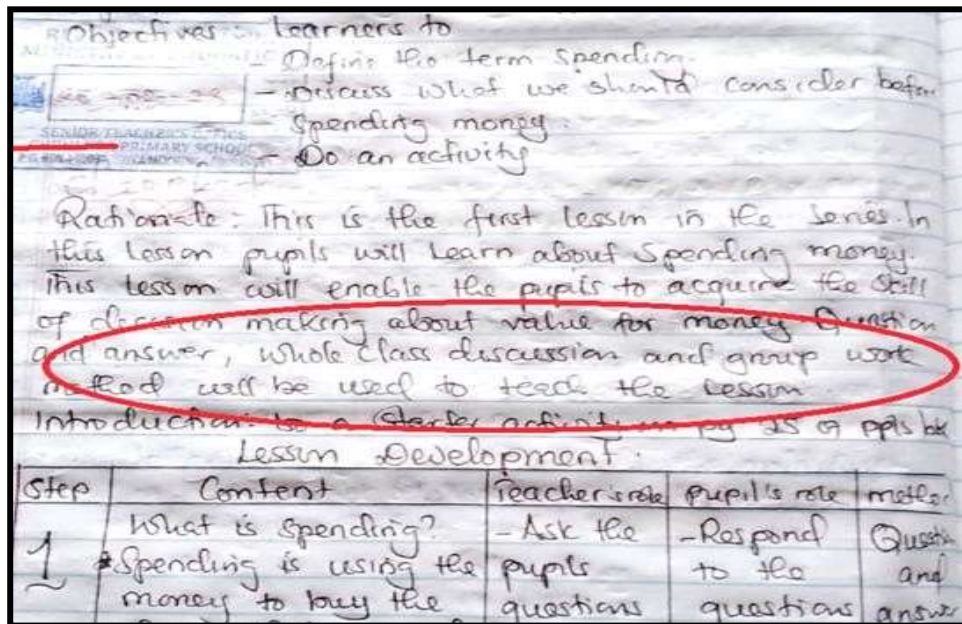 Objectives: Learners to
- Define the term spending.
- Discuss what we should consider before
spending money.
SENIOR TEACHER'S OFFICE
PRIMARY SCHOOL
- Do an activity
Rationale: This is the first lesson in the series. In
this lesson pupils will learn about spending money.
This lesson will enable the pupils to acquire the skill
of decision making about value for money. Question
and answer, whole class discussion and group work
method will be used to teach the lesson.
Introduction: Do a starter activity on pg 25 of ppls bk
Lesson Development.
Step Content Teacher's role pupil's role method
1 What is spending? - Ask the - Respond Question
* Spending is using the pupils to the and
money to buy the questions questions answer